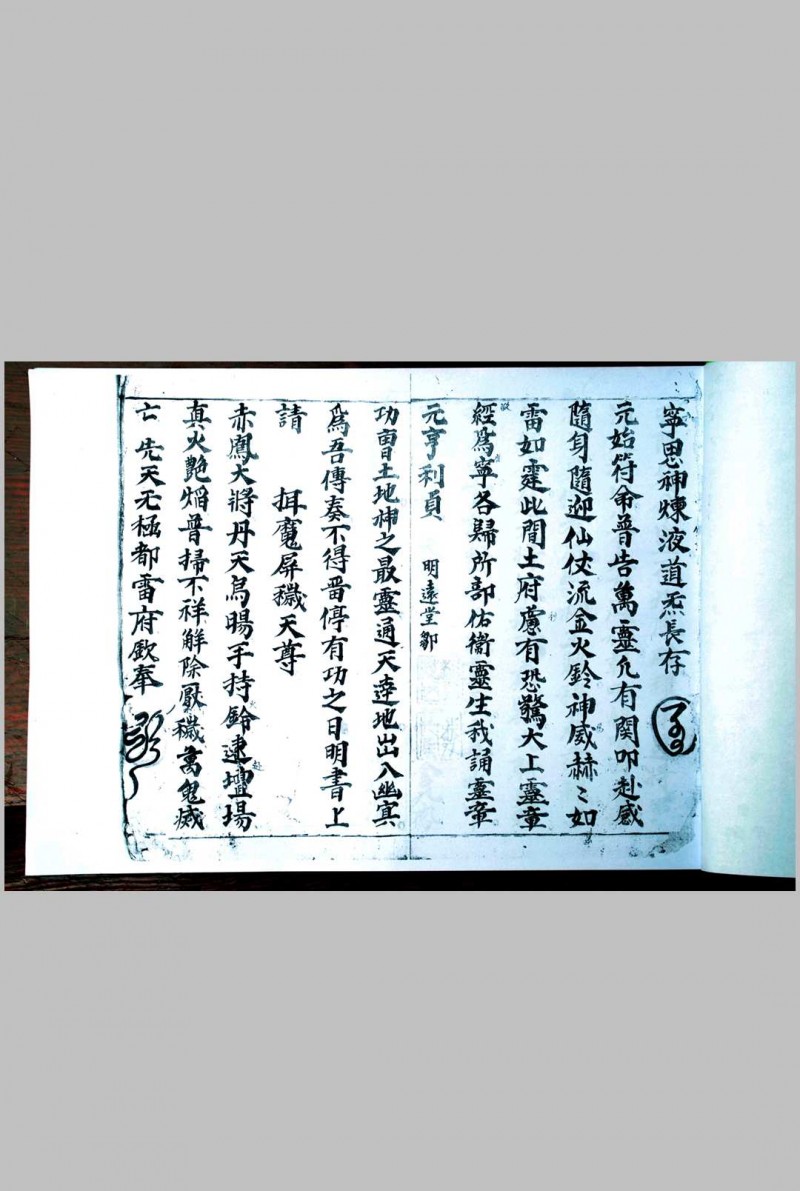 寧思神煉液道炁長存
元始符命普告萬靈凢有関叩赴感
隨身隨迎仙伏流金火鈴神威赫〻如
雷如霆此間土府慮有恐驚大上靈章
經爲寧各歸所部佑衞靈生我誦靈章
元亨利貟 明遠堂鄒
功曹土地神之最靈通天達地出入幽冥
爲吾傳奏不得畱停有功之日明書上
請 揖魔屏穢天尊
赤鳳大將丹天烏暘手持鈴速壇場
真火艷焰普掃不祥觧除厭穢萬鬼滅
亡 先天无極都雷府欽奉